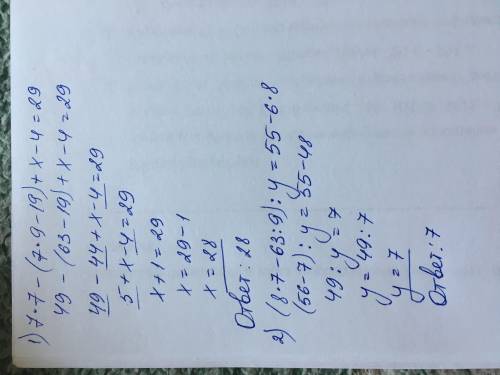 1) 7·7-(7·9-19)+x-4=29
49-(63-19)+x-4=29
49-44+x-4=29
5+x-4=29
x+1=29
x=29-1
x=28
Ответ: 28
2) (8·7-63:9):y=55-6·8
(56-7):y=55-48
49:y=7
y=49:7
y=7
Ответ: 7